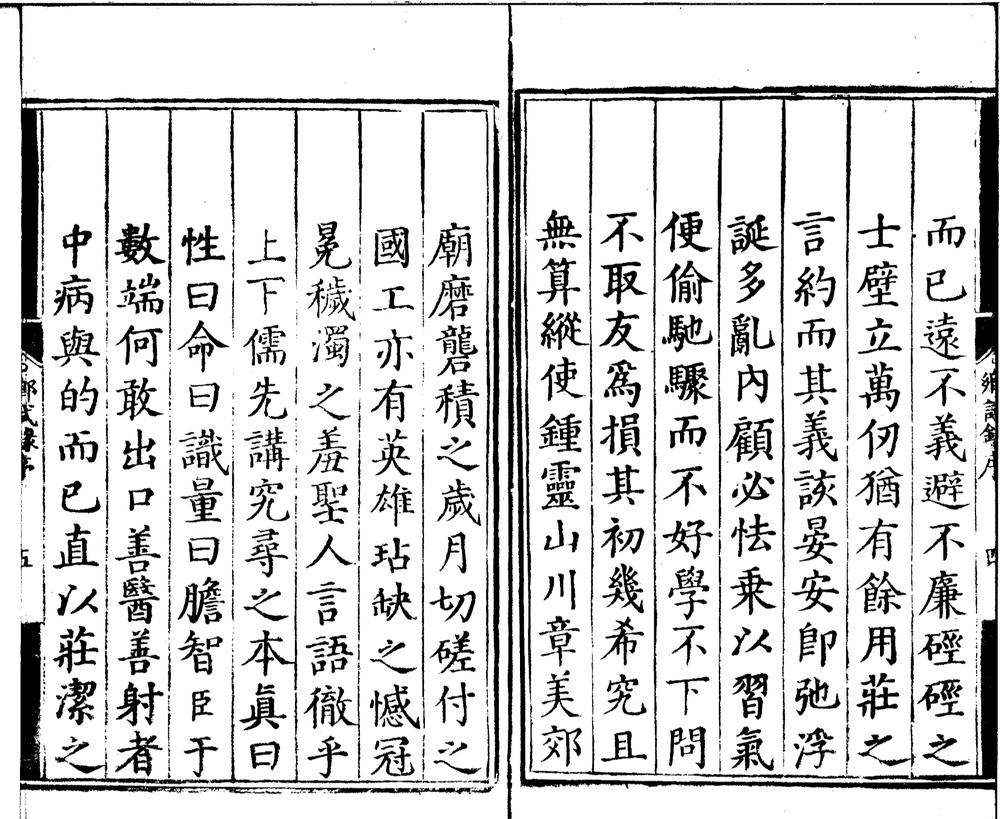 而已遠不義避不廉硜硜之
士壁立萬仞猶有餘用莊之
言約而其義該晏安卽弛浮
誕多亂內顧必怯乗以習氣
便偷馳驟而不好學不下問
不取友爲損其初幾希究且
無算縱使鍾靈山川章美郊
鄉試錄序
四
廟磨礲積之歲月切磋付之
國工亦有英雄玷缺之憾冠
冕穢濁之羞聖人言語徹乎
上下儒先講究尋之本眞曰
性曰命曰識量曰膽智臣于
數端何敢出口善醫善射者
中病與的而已直以莊潔之
鄉試錄序
五